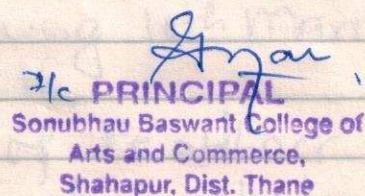 I/c PRINCIPAL
Sonubhau Baswant College of
Arts and Commerce,
Shahapur, Dist. Thane